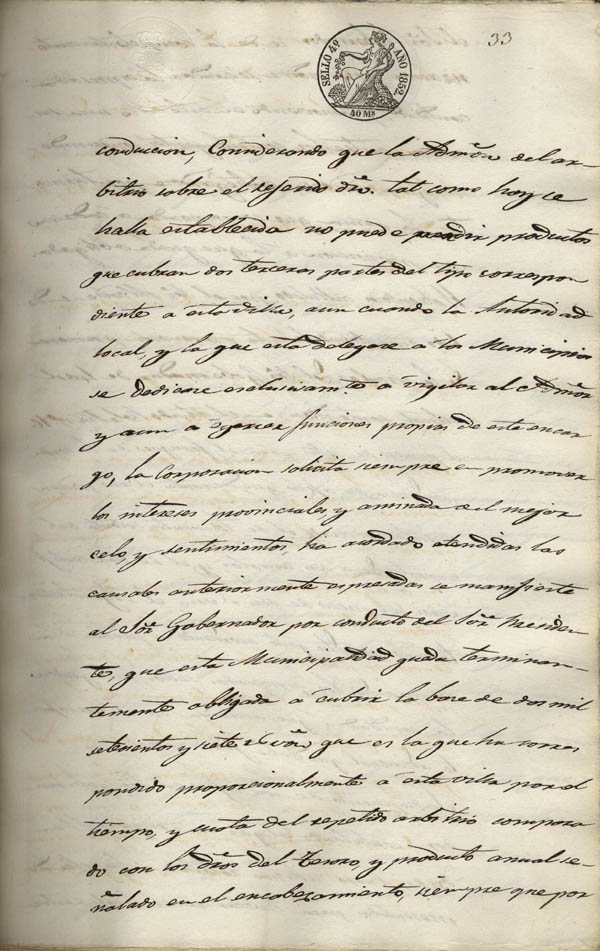 33
SELLO 4º AÑO 1852.
40 Ms
conduccion, Considerando que la Admõn del ar-
bitrio sobre el referido dro. tal como hoy se
halla establecida no puede rendir productos
que cubran dos terceras partes del tipo correspon
diente a esta villa, aun cuando la Autoridad
local, y la que esta delegare a los Municipios
se dedicare esclusivamte. a vigilar al Admõr
y aun a egercer funciones propias de este encar
go, la Corporacion solicita siempre en promover
los intereses provinciales, y animada del mejor
celo, y sentimientos, ha acordado atendidas las
causales anteriormente espresadas se manifieste
al Sor. Gobernador por conducto del Sor. Presiden-
te, que esta Municipalidad queda terminan-
temente obligada a cubrir la base de dos mil
setecientos y siete rs von que es la que ha corres
pondido proporcionalmente a esta villa por el
tiempo, y cuota del repetido arbitrio compara
do con los dros del Tesoro, y producto anual se-
ñalado en el encabezamiento, siempre que por